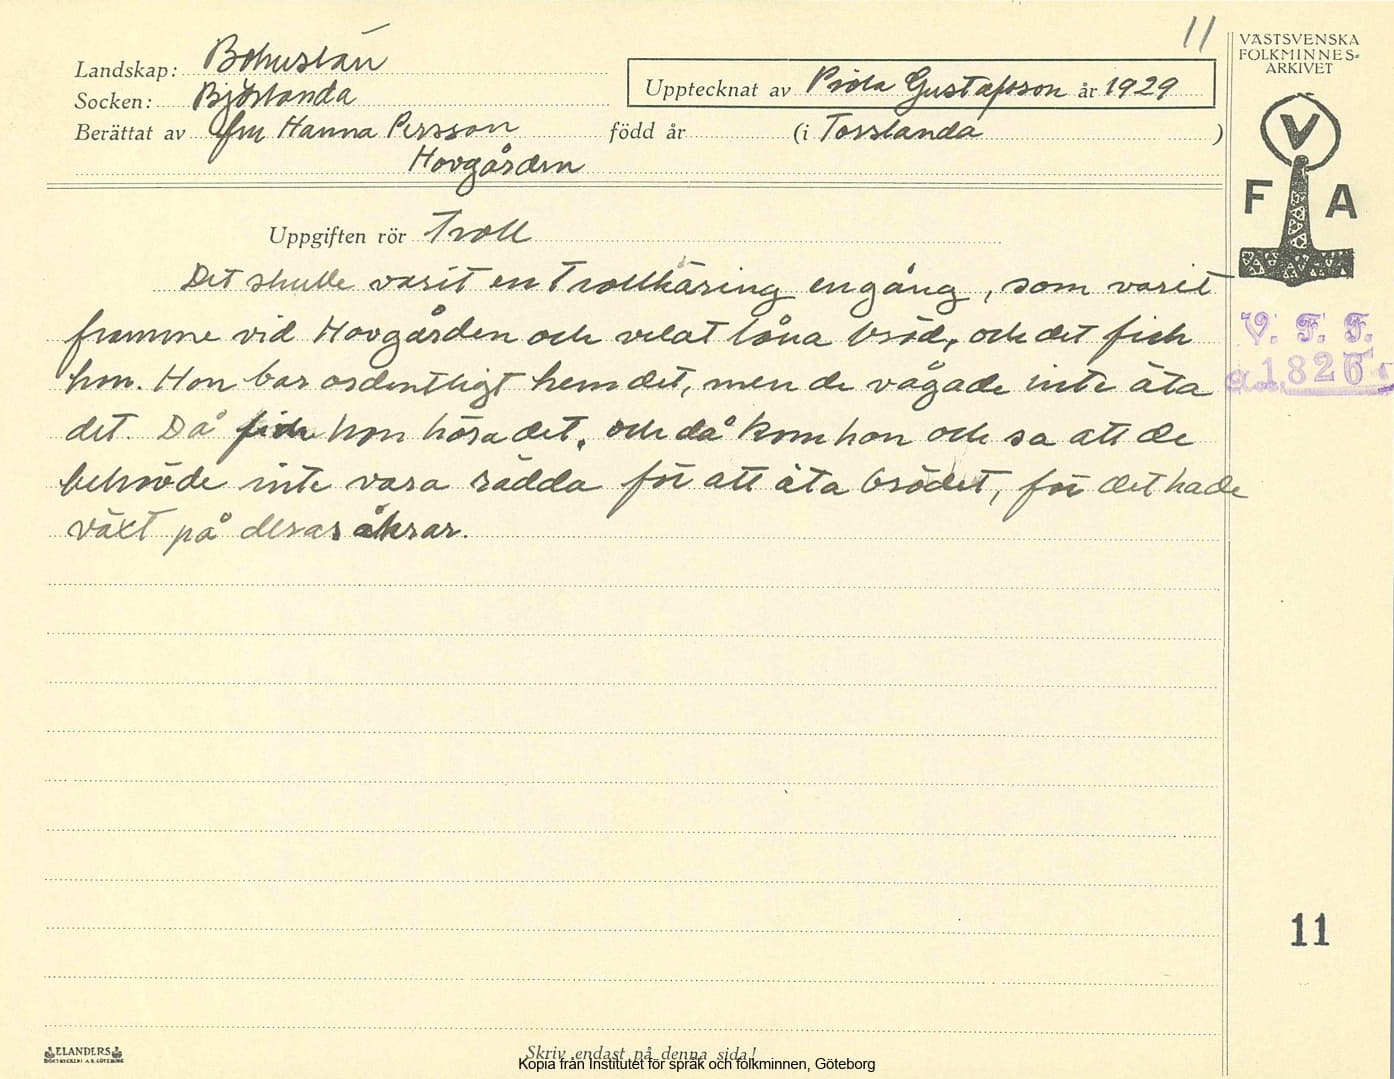 11
VÄSTSVENSKA
FOLKMINNES-
ARKIVET
Landskap: Bohuslän
Socken: Björlanda
Upptecknat av Gustafsson år 1929
Berättat av fru Hanna Persson född år (i Torslanda )
Hovgården
V
F A
Uppgiften rör Troll
Det skulle varit en Trollkäring engång, som varit
framme vid Hovgården och velat låna bröd, och det fick
hon. Hon bar ordentligt hem det, men de vågade inte äta
det. Då fick hon höra det, och då kom hon och sa att de
behövde inte vara rädda för att äta brödet, för det hade
växt på deras åkrar.
V. F. F.
1826
11
ELANDERS
BOKTRYCKERI A.B. GÖTEBORG
Skriv endast på denna sida!
Kopia från Institutet för språk och folkminnen, Göteborg